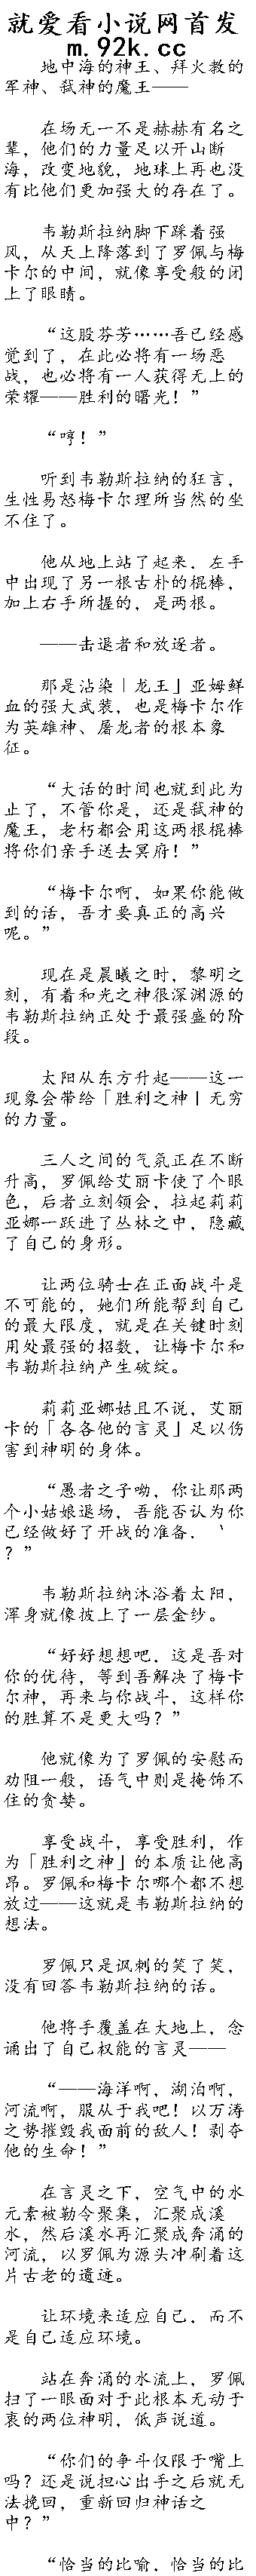 就爱看小说网首发
m.92k.cc
地中海的神王、拜火教的
军神、弑神的魔王——
在场无一不是赫赫有名之
辈，他们的力量足以开山断
海，改变地貌，地球上再也没
有比他们更加强大的存在了。
韦勒斯拉纳脚下踩着强
风，从天上降落到了罗佩与梅
卡尔的中间，就像享受般的闭
上了眼睛。
“这股芬芳……吾已经感
觉到了，在此必将有一场恶
战，也必将有一人获得无上的
荣耀——胜利的曙光！”
“哼！”
听到韦勒斯拉纳的狂言，
生性易怒梅卡尔理所当然的坐
不住了。
他从地上站了起来，左手
中出现了另一根古朴的棍棒，
加上右手所握的，是两根。
——击退者和放逐者。
那是沾染「龙王」亚姆鲜
血的强大武装，也是梅卡尔作
为英雄神、屠龙者的根本象
征。
“大话的时间也就到此为
止了，不管你是，还是弑神的
魔王，老朽都会用这两根棍棒
将你们亲手送去冥府！”
“梅卡尔啊，如果你能做
到的话，吾才要真正的高兴
呢。”
现在是晨曦之时，黎明之
刻，有着和光之神很深渊源的
韦勒斯拉纳正处于最强盛的阶
段。
太阳从东方升起——这一
现象会带给「胜利之神」无穷
的力量。
三人之间的气氛正在不断
升高，罗佩给艾丽卡使了个眼
色，后者立刻领会，拉起莉莉
亚娜一跃进了丛林之中，隐藏
了自己的身形。
让两位骑士在正面战斗是
不可能的，她们所能帮到自己
的最大限度，就是在关键时刻
用处最强的招数，让梅卡尔和
韦勒斯拉纳产生破绽。
莉莉亚娜姑且不说，艾丽
卡的「各各他的言灵」足以伤
害到神明的身体。
“愚者之子呦，你让那两
个小姑娘退场，吾能否认为你
已经做好了开战的准备，｀
？”
韦勒斯拉纳沐浴着太阳，
浑身就像披上了一层金纱。
“好好想想吧，这是吾对
你的优待，等到吾解决了梅卡
尔神，再来与你战斗，这样你
的胜算不是更大吗？”
他就像为了罗佩的安慰而
劝阻一般，语气中则是掩饰不
住的贪婪。
享受战斗，享受胜利，作
为「胜利之神」的本质让他高
昂。罗佩和梅卡尔哪个都不想
放过——这就是韦勒斯拉纳的
想法。
罗佩只是讽刺的笑了笑，
没有回答韦勒斯拉纳的话。
他将手覆盖在大地上，念
诵出了自己权能的言灵——
“——海洋啊，湖泊啊，
河流啊，服从于我吧！以万涛
之势摧毁我面前的敌人！剥夺
他的生命！”
在言灵之下，空气中的水
元素被勒令聚集，汇聚成溪
水，然后溪水再汇聚成奔涌的
河流，以罗佩为源头冲刷着这
片古老的遗迹。
让环境来适应自己，而不
是自己适应环境。
站在奔涌的水流上，罗佩
扫了一眼面对于此根本无动于
衷的两位神明，低声说道。
“你们的争斗仅限于嘴上
吗？还是说担心出手之后就无
法挽回，重新回归神话之
中？”
“恰当的比喻，恰当的比